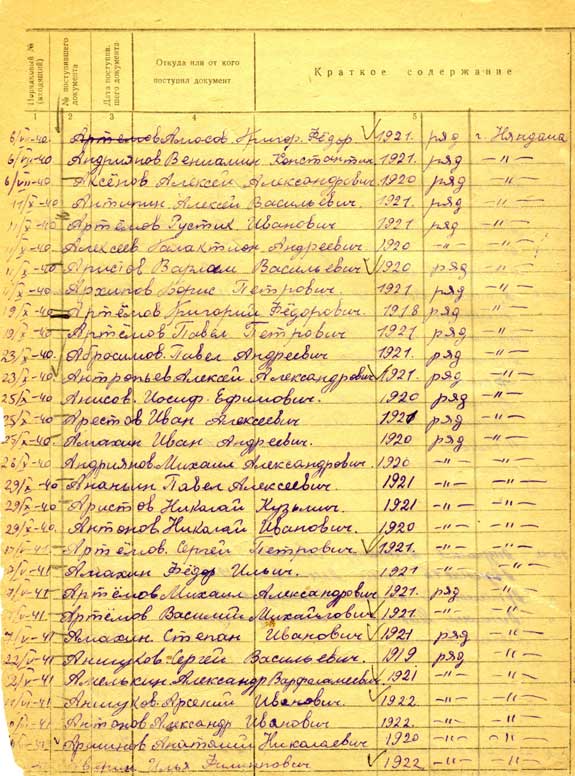 Порядковый № (входящий)
№ поступившего документа
Дата поступившего документа
Откуда или от кого поступил документ
Краткое содержание
1 2 3 4 5
6/VII-40. Амосов Григор. Фёдор 1921. ряд г. Няндома
6/VII-40. Андриянов Вениамин Константин 1921. ряд -"-
6/VII-40 Аксёнов Алексей Александрович 1920 ряд -"-
11/X-40 Антипин Алексей Васильевич. 1921. ряд -"-
11/X-40 Артёмов Иванович 1921 ряд -"-
Алексеев Галактион Андреевич 1920 -"- -"-
11/X-40 Аристов Варлам Васильевич 1920 ряд -"-
Архипов Борис Петрович. 1921 ряд -"-
19/X-40 Артёмов Григорий Фёдорович. 1918 ряд -"-
19/X-40 Артёмов Павел Петрович 1921 ряд -"-
23/X-40. Абросимов. Павел Андреевич 1921. ряд -"-
23/X-40. Антропьев Алексей Александрович 1921. ряд -"-
25/X-40 Анисов. Иосиф. Ефимович. 1920 ряд -"-
25/X-40 Арестов Иван Алексеевич 1921 ряд -"-
25/X-40 Амахин Иван Андреевич. 1920 ряд -"-
26/X-40 Андриянов Михаил Александрович. 1920 -"- -"-
29/X-40 Ананьин Павел Алексеевич. 1921 -"- -"-
29/X-40 Аристов Николай Кузьмич. 1921 -"- -"-
29/X-40. Антонов Николай Иванович. 1920 -"- -"-
Артёмов. Сергей Петрович. 1921. -"- -"-
Амахин Фёдор Ильич. 1921 -"- -"-
Артёмов Михаил Александрович 1921 ряд -"-
Артёмов Василий Михайлович 1921. -"- -"-
7/V-41 Амахин. Степан Иванович 1921 ряд -"-
22/V-41 Анишуков Сергей Васильевич. 1919 ряд -"-
Амелькин Александр Варфоламеевич 1921 -"- -"-
Анишуков. Арсений Иванович. 1922. -"- -"-
Антонов Александр Иванович 1922. -"- -"-
Анатолий Николаевич. 1920 -"- -"-
Илья Филиппович 1922 -"- -"-